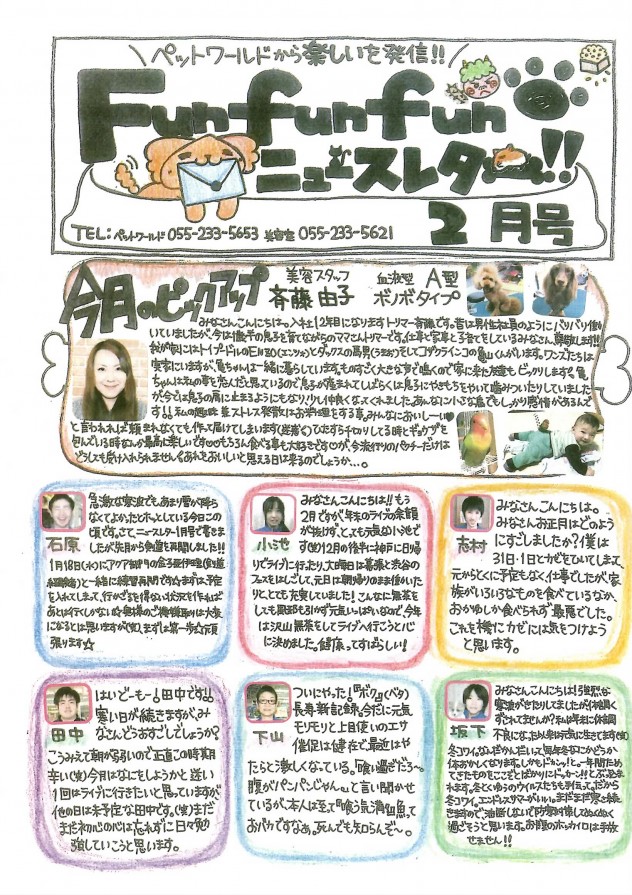 ペットワールドから楽しいを発信!!
Funfunfun
ニュースレター!!
2月号
TEL:ペットワールド 055-233-5653 美容室 055-233-5621
今月のピックアップ
美容スタッフ 斉藤由子
血液型 A型
ボソボタイプ
みなさんこんにちは。入社12年目になりますトリマー斉藤です。昔は男性社員のようにバリバリ働
いていましたが、今は
息子を育てながらのママさんトリマーです。仕事と家事と子育てをしているみなさん
我が家にはトイプードルの
とダックスの
そしてコザクラインコの亀山くんがいます。ワンズたちは
実家にいますが、亀ちゃんは一緒に暮らしています。ものすごく大きな声で鳴くので家に来た友達もビックリします。亀
ちゃんは私の事を恋人だと思っているので息子が産まれてしばらくは息子にやきもちをやいて噛みついたりしていました
が、今では息子の肩に止まるようにもなり、少し仲良くなってくれました。あんなに小さな鳥でもしっかり感情があるんで
す!!私の趣味兼ストレス発散はお料理をする事。みんなにおいしーい♥
と言われれば頼まれなくても作って届けてしまいます(迷惑!)ひたすら千切りしてる時とギョウザを
包んでいる時なんか最高に楽しいです♡もちろん食べる事も大好きです♡が、今流行りのパクチーだけは
どうしても受け入れられません。あれをおいしいと思える日は来るのでしょうか…。
石原
急激な寒波でも、あまり雪が降ら
なくてよかったとホッとしている今日この
頃です。さて、ニュースレター1月号で書きま
したが先月から
を再開しました!!
1月18日(水)にアクア部門の金子
と一緒に練習再開です☆まずは予定
を入れてしまって、行かざるを得ない状況を作れば
あとは行くしかない☆奥様のご機嫌取りは大変
になるとは思いますが(笑)、まずは第一歩☆頑
張ります☆
小池
みなさんこんにちは!!もう
2月ですが、年末のライブの余韻
が抜けず、とっても元気な小池で
す(笑)12月の後半に神戸に日帰
りでライブに行ったり、大晦日は幕張と渋谷の
フェスをはしごして、元日は朝帰りのまま働いたり
ととても充実していました!こんなに無茶を
しても風邪も引かず元気いっぱいなので、今年
は沢山無茶をしてライブへ行こうと心
に決めました。健康ってすばらしい!
志村
みなさんこんにちは。
みなさんお正月はどのよう
にすごしましたか?僕は
31日・1日とカゼをひいてしまって、
元からとくに予定もなく仕事でしたが、家
族がいろいろなものを食べているなか、
おかゆしか食べられず最悪でした。
これを機にカゼには気をつけよう
と思います。
田中
はいどーもー!田中です!!
寒い日が続きますが、み
なさんどうおすごしでしょうか?
こうみえて朝が弱いので正直この時期
辛い(笑)今月はなにをしようかと迷い
1回はライブに行きたいと思っていますが
他の日は未予定な田中です。(笑)まだ
まだ初心の心は忘れずに日々勉
強していこうと思います。
下山
ついにやった!『ボク』(ベタ)
長寿新記録。今だに元気
モリモリと上目使いのエサ
催促は健在で、最近はや
たらと激しくなっている。『喰い過ぎだろ〜。
腹がパンパンじゃん。』と言い聞かせ
ているが、本人は至って『喰う気満々』魚って
おバカですなぁ。死んでも知らんぞ〜。
坂下
みなさんこんにちは!強烈な
寒波がきたりしてましたが体調く
ずされてませんか?私は年末に体調
不良になったため、末は元気に生きてます(笑)
冬コワイ。なんだかんだいって毎年冬なにかどうか
体おかしくなります。しかもドカン!!と。一年間ため
てきたものをここぞとばかりにドッカーン!!とぶっ込ま
れます。冬とゆうのウイルスたちも手伝って。だから
冬コワイ。エンドレスサマーがいい。まだまだ寒さ続
きますので、油断しないで防寒対策してぬくぬく
過ごそうと思います。お顔のホッカイロは手放
せません!!